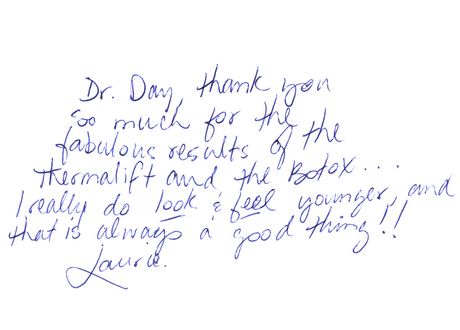 Dr. Day, thank you
so much for the
fabulous results of the
Thermalift and the Botox...
I really do look & feel younger, and
that is always a good thing!!
Laurie.